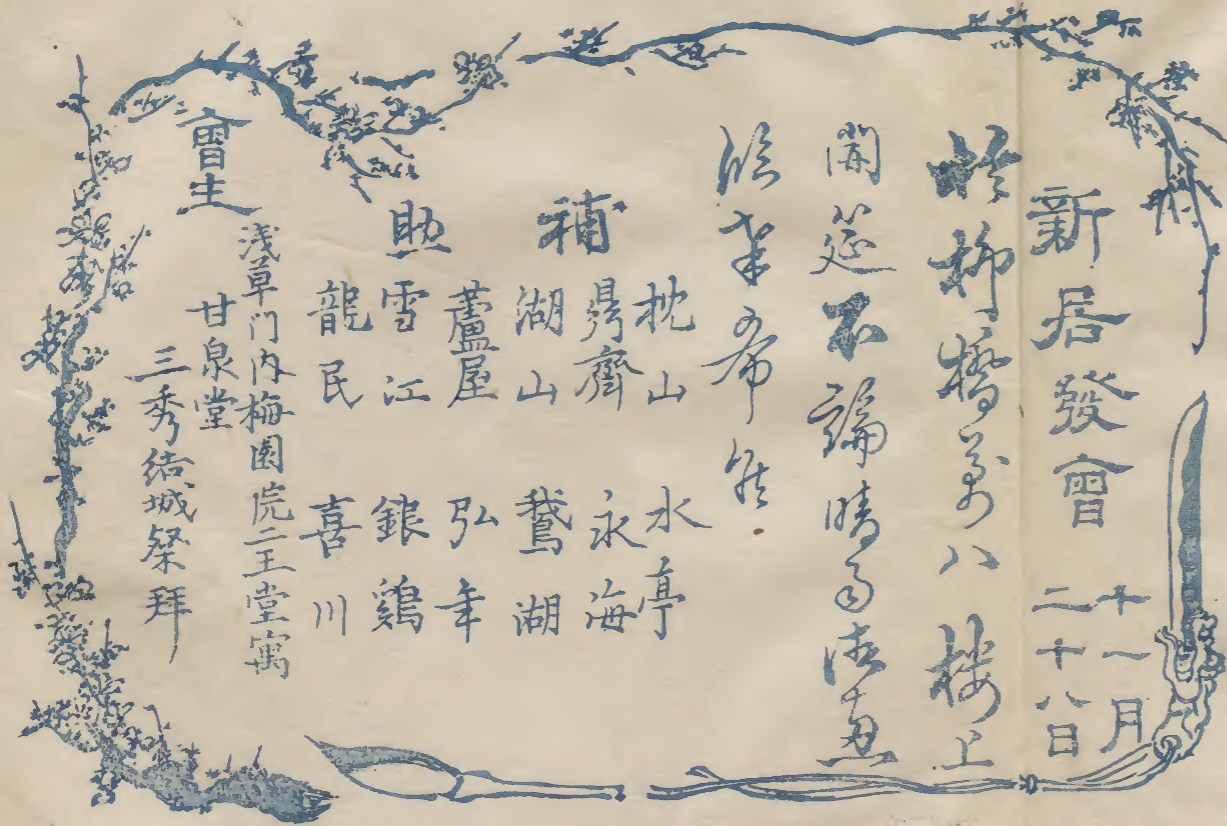 新居發會
十一月
二十八日
於柳橋万八楼上
開筵不論晴雨諸君
臨筆希候
補
助
枕山 水亭
永海
湖山 鵞湖
蘆屋 弘年
雪江 銀鶏
龍民 喜川
會主
浅草门内梅園院二王堂寓
甘泉堂
三秀結城粲拜